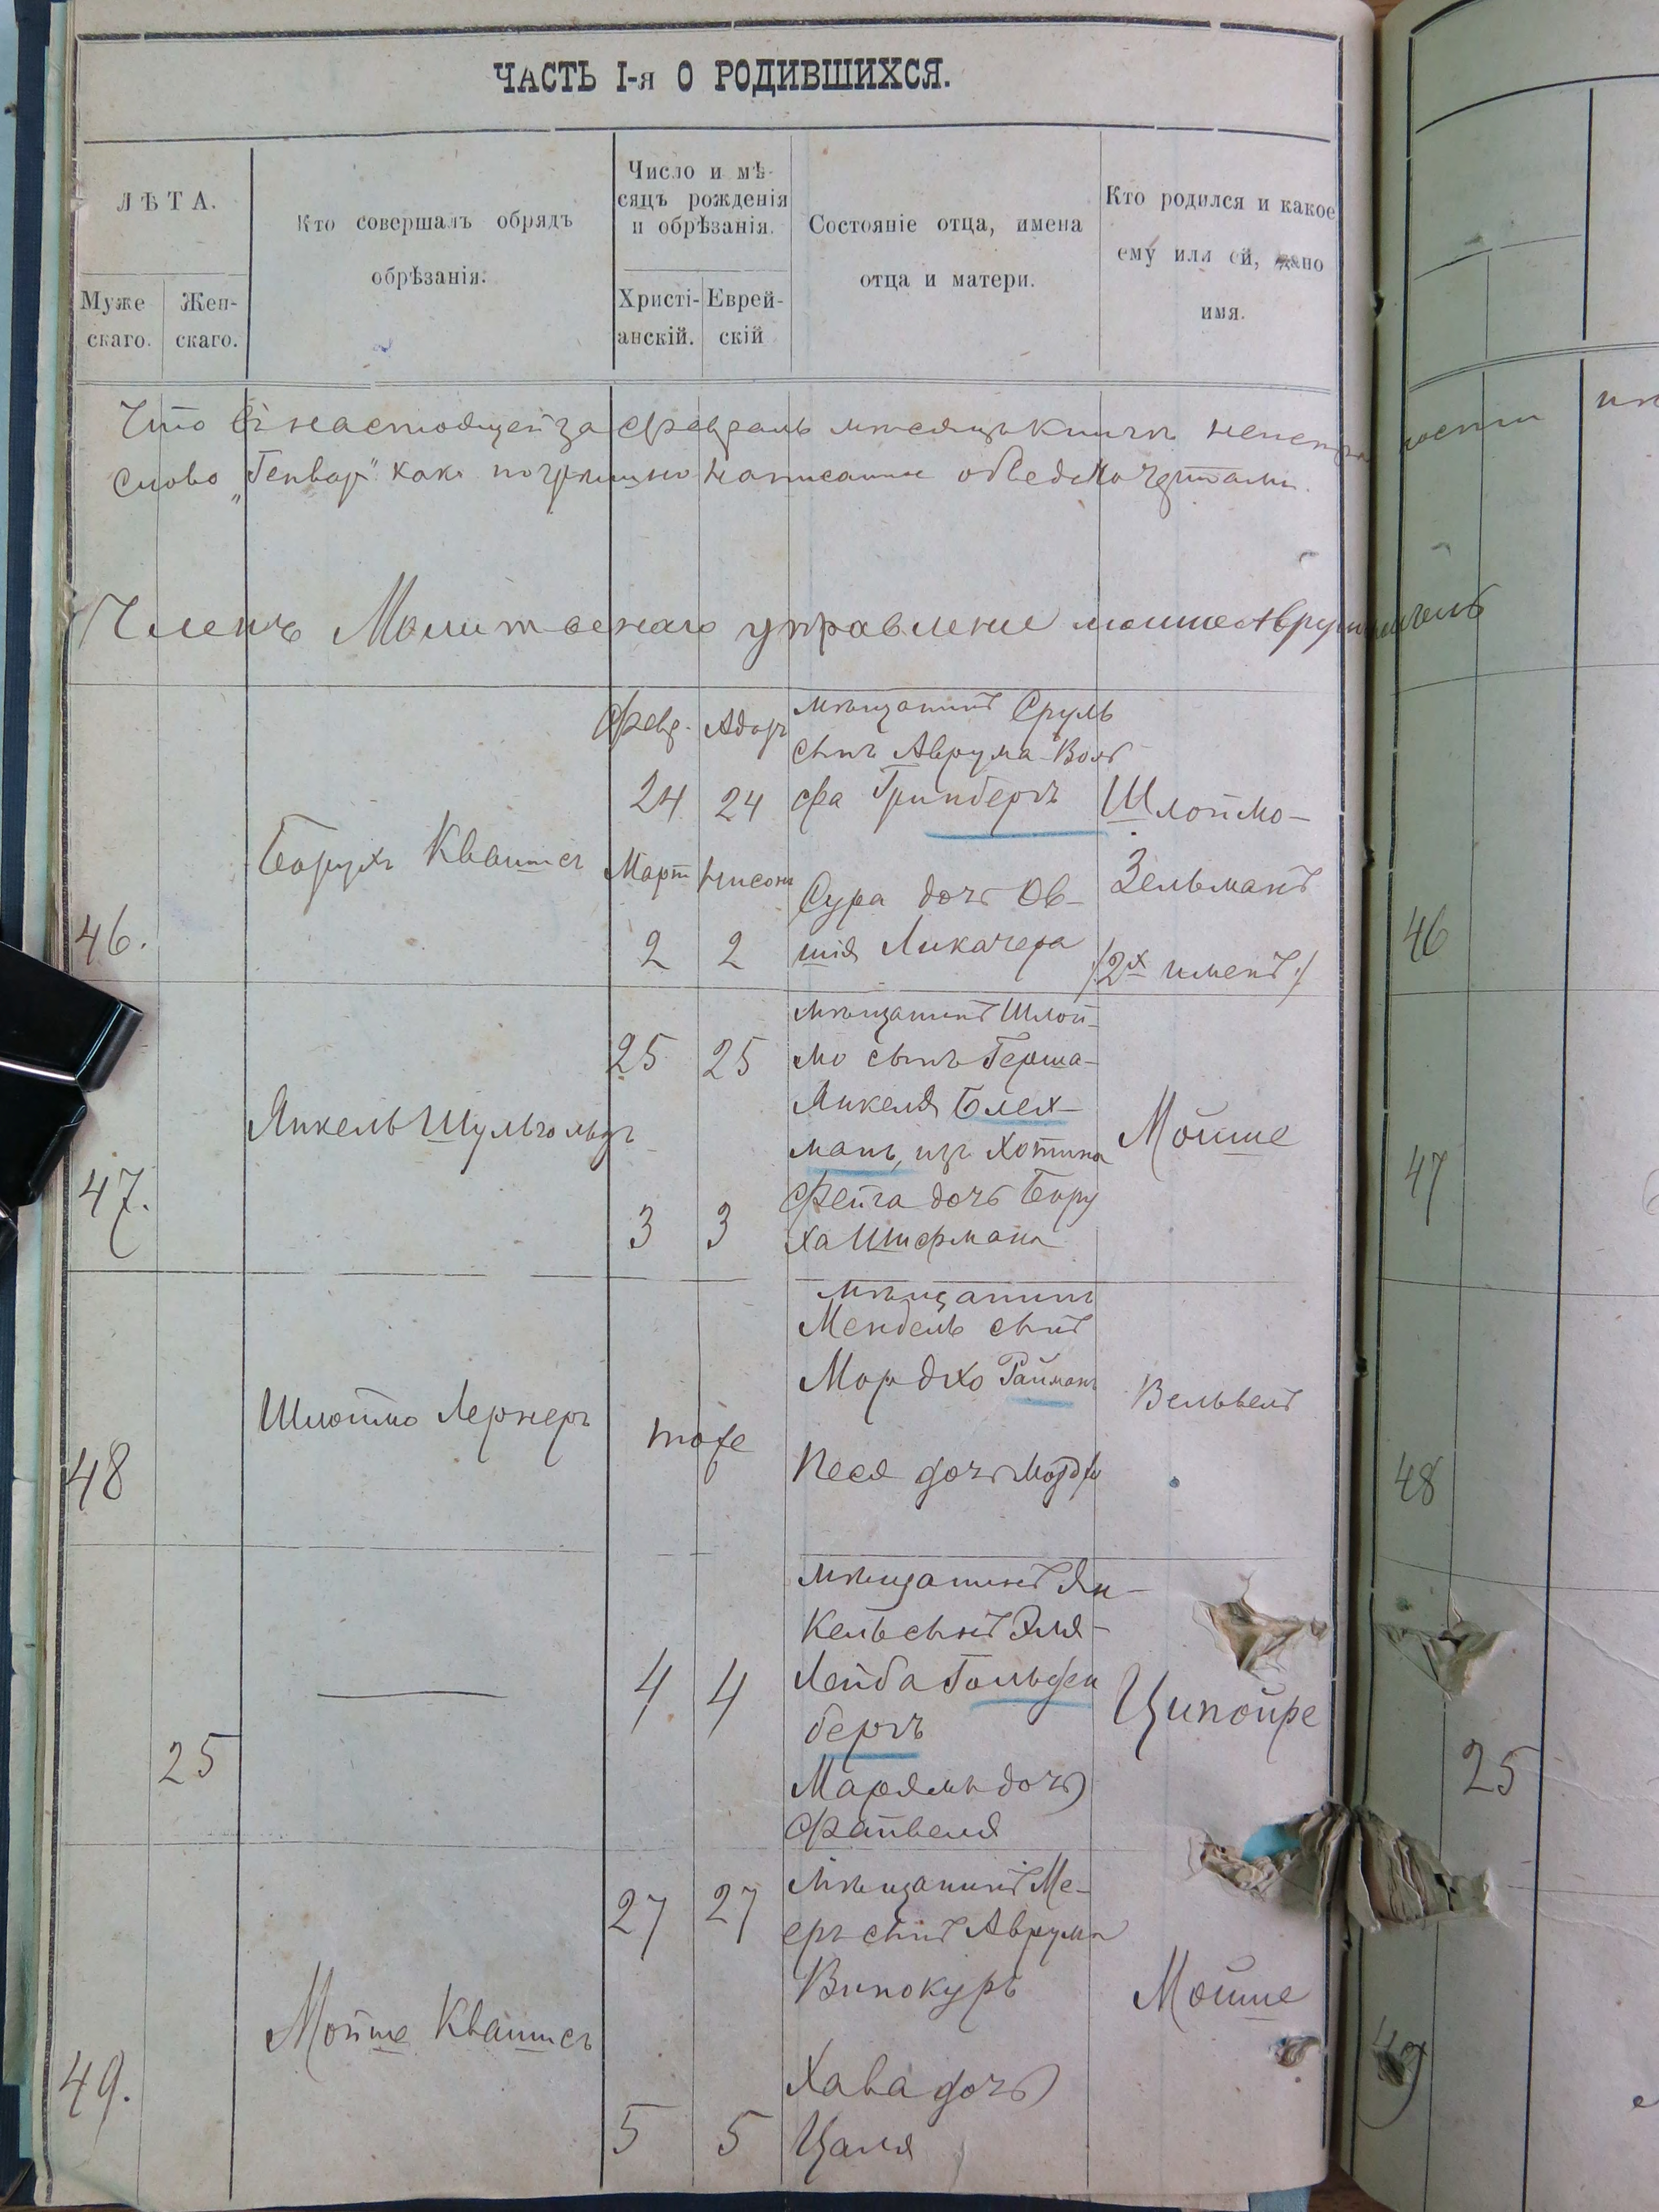 ЧАСТЬ I-я О РОДИВШИХСЯ.
ЛѢТА.
Муже
скаго.
Жен-
скаго.
Кто совершалъ обрядъ
обрѣзанія.
Число и мѣ-
сяцъ рожденія
и обрѣзанія.
Христі-
анскій.
Еврей-
скій
Состояніе отца, имена
отца и матери.
Кто родился и какое
ему или ей, дано
имя.
Что въ настоящей за февраль мѣсяцъ книгѣ
слово „Генвар" какъ погрѣшно написанное обведено чертами.
Членъ Молитвенаго управленіе мошше
46.
Борухъ Квитисъ
Февр. Адаръ
24 24
Март Нисонъ
2 2
мѣщанинъ Сруль
сынъ Аврума-Воль
фа Гринбергъ
Сура дочь Ов-
шія Ликачера
Шлоймо-
Зельманъ
/:2х именъ:/
46
47.
Янкель Шульгольдъ
25 25
3 3
мѣщанинъ Шлой-
мо сынъ Герша-
Янкеля Блех-
манъ, изъ Хотина
Фейга дочь Бору
ха Шифмана
Мойше
47
48
Шлоймо Лернеръ
тоже
мѣщанинъ
Мендель сынъ
Мордхо Райманъ
Песя дочь Мордхо
Вельвелъ
48
25
4 4
мѣщанинъ Ян-
кель сынъ Эля-
Лейба Гольден
бергъ
Марямъ дочь
Файвеля
Ципойре
25
49.
Мойше Квитисъ
27 27
5 5
Мѣщанинъ Ме-
еръ сынъ Аврума
Винокуръ
Хава дочь
Цаля
Мойше
49